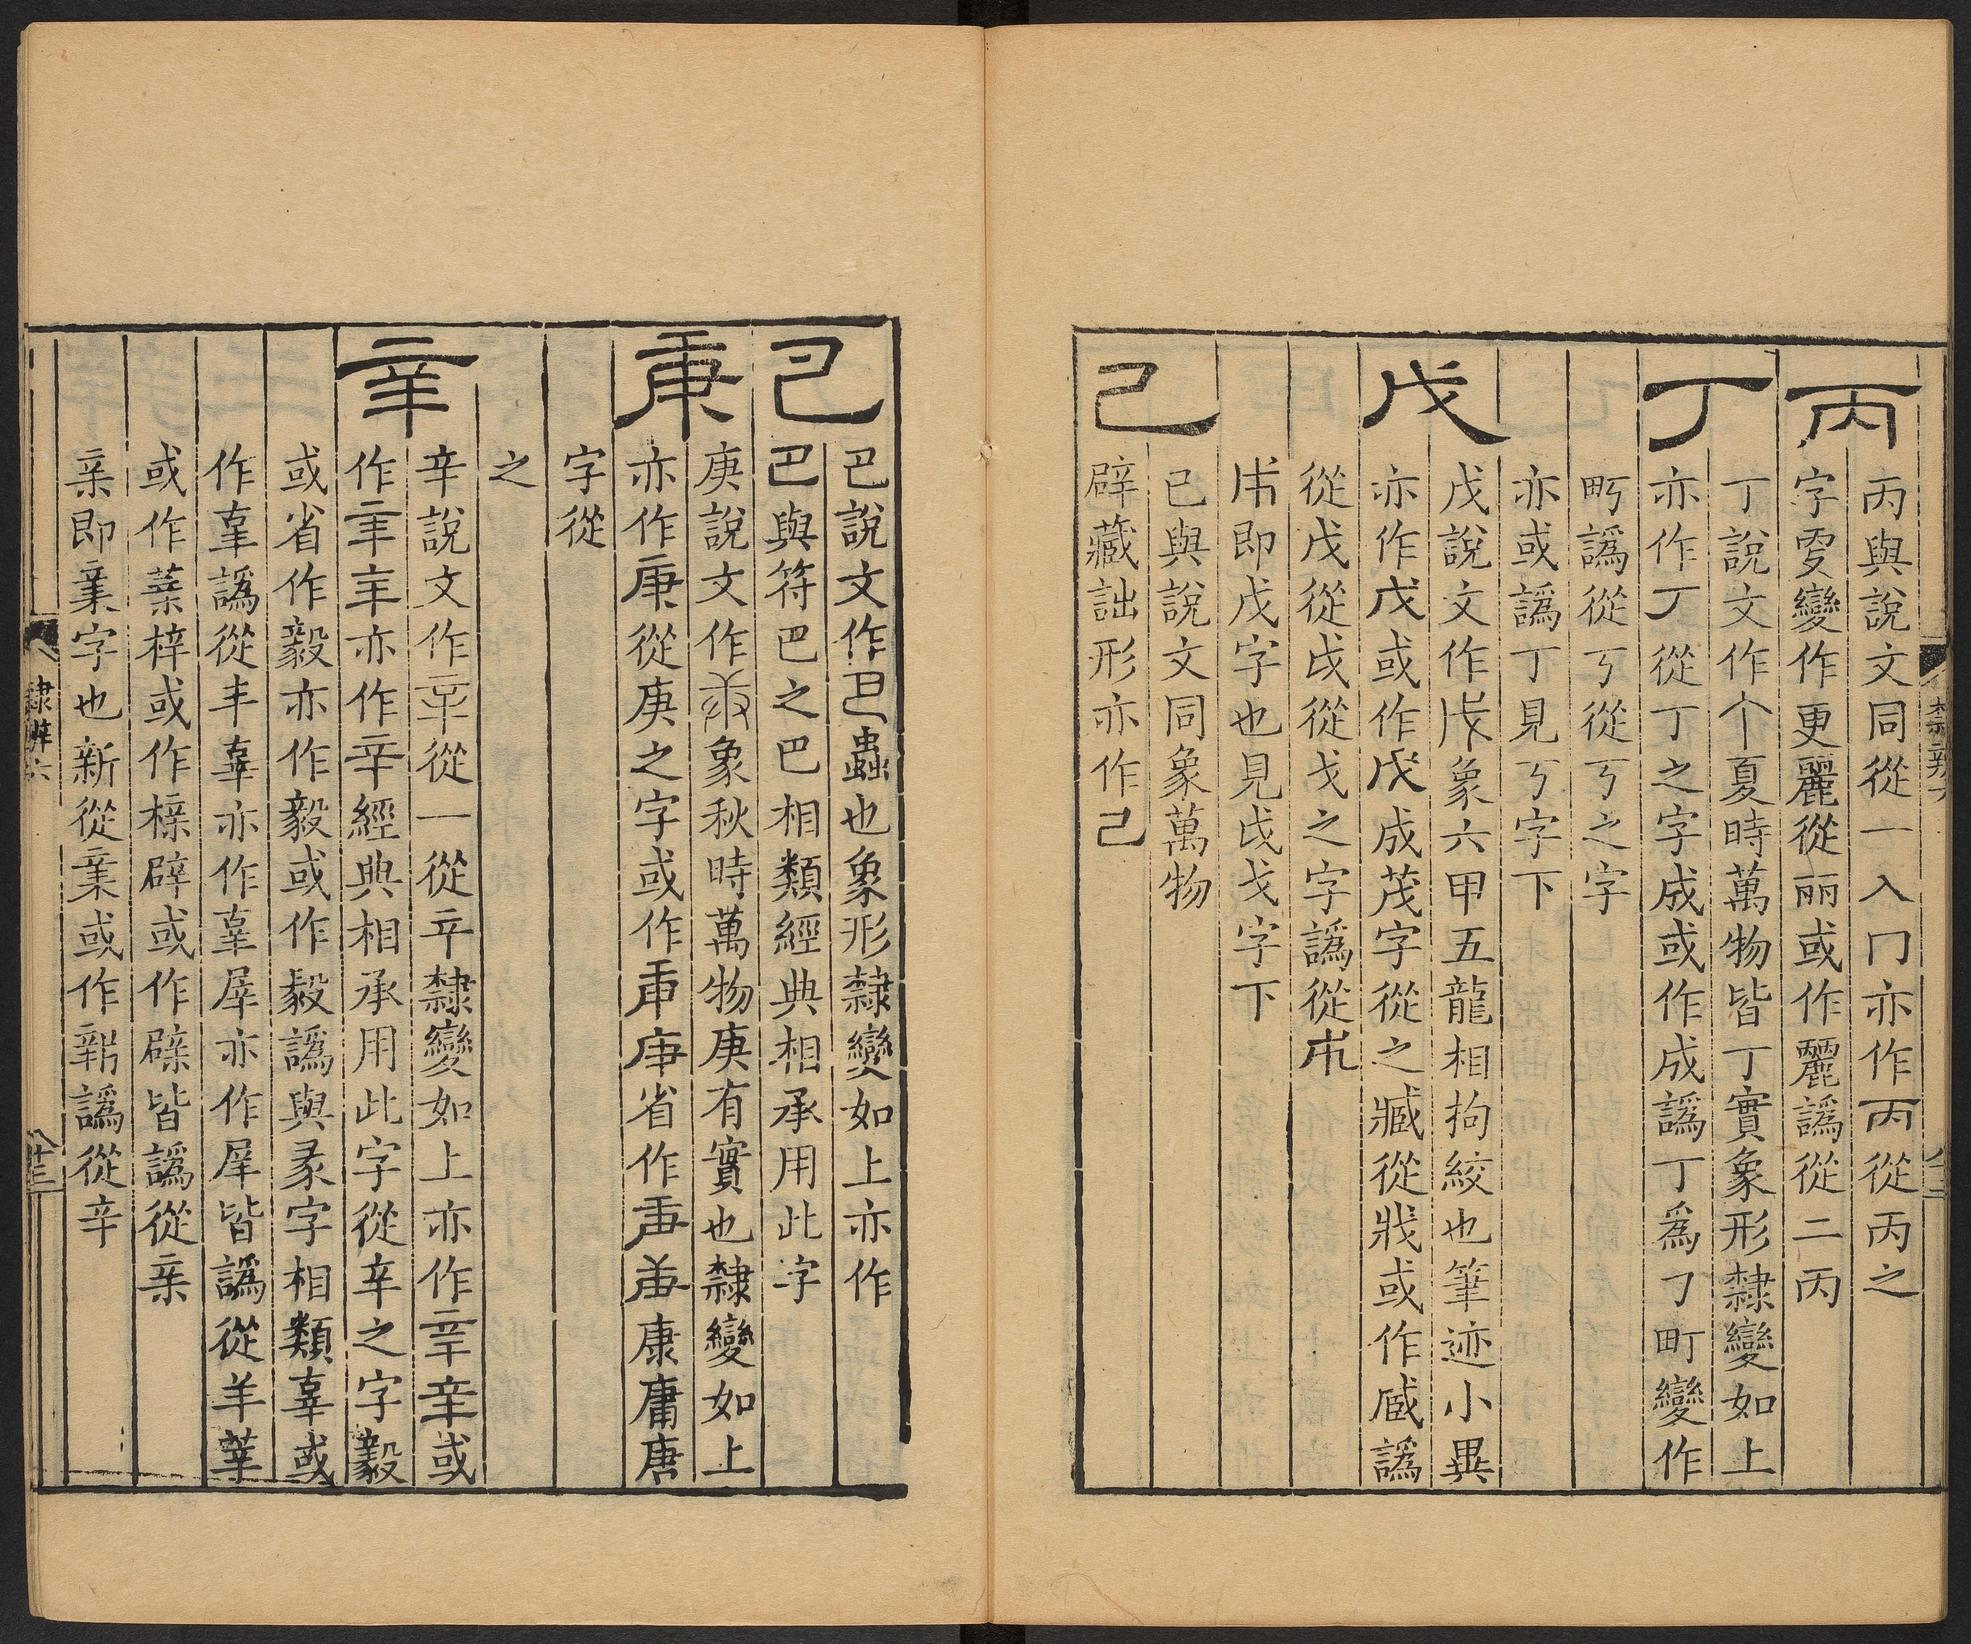 丙
丙與說文同從一入冂亦作丙從丙之
字㪅變作更麗從丽或作麗譌從二丙
丁
丁說文作个夏時萬物皆丁實象形隸變如上
亦作丁從丁之字成或作成譌丁爲𠃌町變作
町譌從丂從丂之字
亦或譌丁見丂字下
戊
戊說文作戊象六甲五龍相拘絞也筆迹小異
亦作戊或作戊成茂字從之臧從戕或作臧譌
從戊從戉從戈之字譌從
即戊字也見戉戈字下
己
己與說文同象萬物
辟藏詘形亦作己
隸辨六
巴
巴說文作巴蟲也象形隸變如上亦作
巴與符巴之巴相類經典相承用此字
庚
庚說文作庚象秋時萬物庚有實也隸變如上
亦作庚從庚之字或作庚庚省作康庸唐
字從
之
辛
辛說文作辛從一從䇂隸變如上亦作辛辛或
作辛辛亦作辛經典相承用此字從辛之字毅
或省作毅亦作毅或作毅譌與豙字相類辜或
作辜譌從丰辜亦作辜屖亦作屖皆譌從羊莘
或作莘梓或作榟辟或作辟皆譌從亲
亲即業字也新從業或作新譌從辛
隸辨六